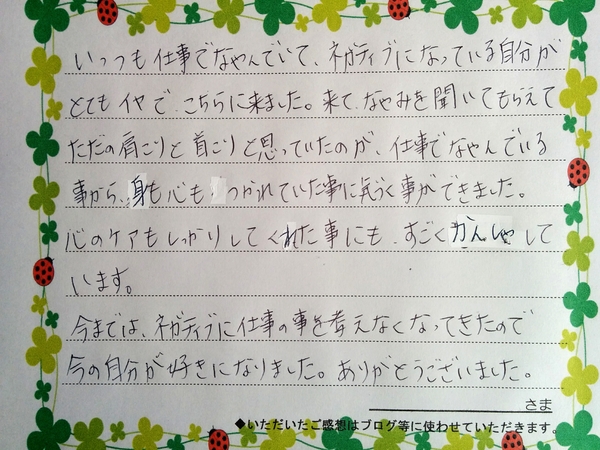 いつも仕事でなやんでいて、ネガティブになっている自分が
とてもイヤで、こちらに来ました。来て、なやみを聞いてもらえて
ただの肩こりと首こりと思っていたのが、仕事でなやんでいる
事から、身も心もつかれていた事に気づく事ができました。
心のケアもしっかりしてくれた事にも、すごくかんしゃして
います。
今までは、ネガティブに仕事の事を考えなくなってきたので
今の自分が好きになりました。ありがとうございました。
さま
◆いただいたご感想はブログ等に使わせていただきます。